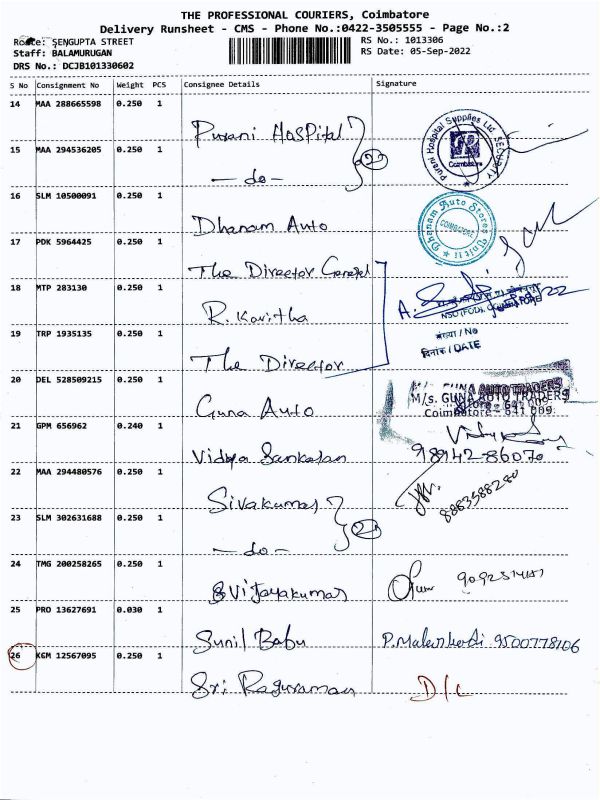 THE PROFESSIONAL COURIERS, Coimbatore
Delivery Runsheet - CMS - Phone No.:0422-3505555 - Page No.:2
Route: SENGUPTA STREET
RS No.: 1013306
Staff: BALAMURUGAN
RS Date: 05-Sep-2022
DRS No.: DCJB101330602
S No Consignment No Weight PCS Consignee Details Signature
14 MAA 288665598 0.250 1 Purani Hospital
Purani Hospital Supplies Ltd SECURITY Coimbatore
15 MAA 294536205 0.250 1 - do - 2
16 SLM 10500091 0.250 1 Dhanam Auto
Dhanam Auto Stores COIMBATORE Unit II
17 PDK 5964425 0.250 1 The Director General
18 MTP 283130 0.250 1 R. Kavitha
NSO (FOD),
संख्या / No
दिनांक / DATE
19 TRP 1935135 0.250 1 The Director
20 DEL 528509215 0.250 1 Guna Auto
M/s. GUNA AUTO TRADERS
Coimbatore - 641 009.
21 GPM 656962 0.240 1 Vidya Sankaran
98942-86070
22 MAA 294480576 0.250 1 Sivakumar
8883588280
23 SLM 302631688 0.250 1 - do - 2
24 TMG 200258265 0.250 1 S Vijayakumar
25 PRO 13627691 0.030 1 Sunil Babu 9500778106
26 KGM 12567095 0.250 1 Sri Raguraman D/L